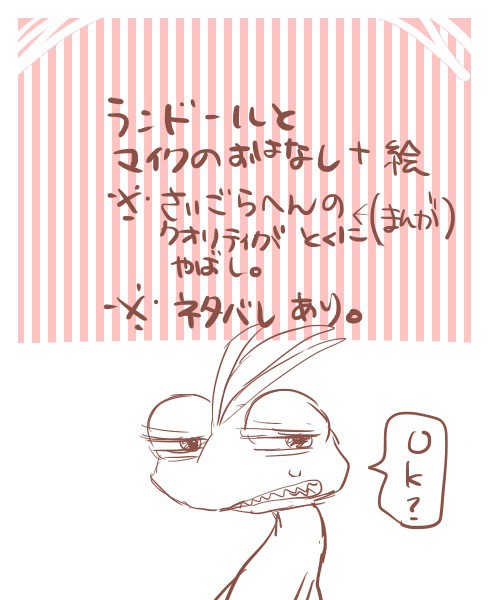 ランドールと
マイクのおはなし+絵
※・さいごらへんの
クオリティが とくに(まんが)
やばし。
※・ネタバレ あり。
Ok?